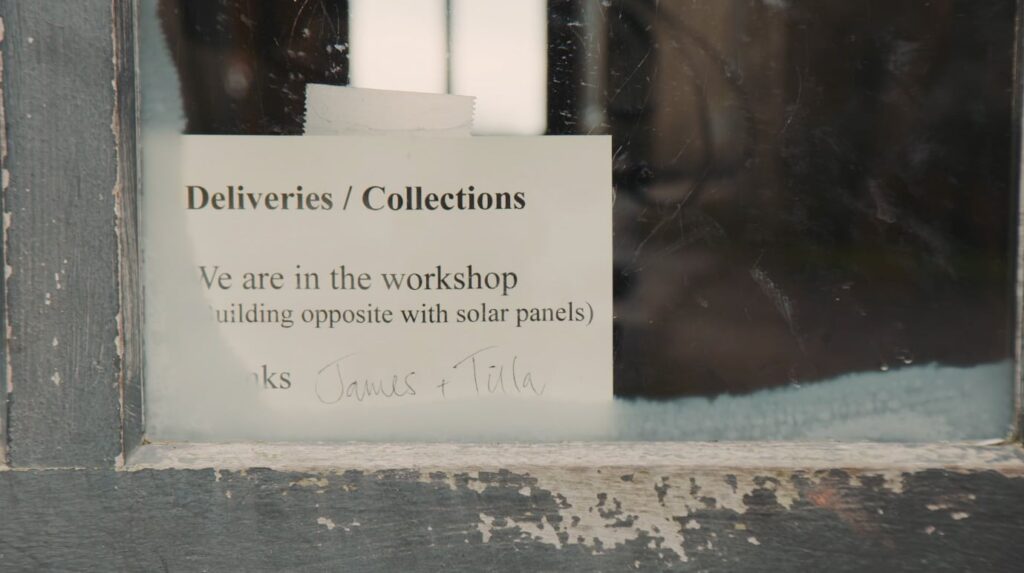 Deliveries / Collections
We are in the workshop
(building opposite with solar panels)
James + Tilla